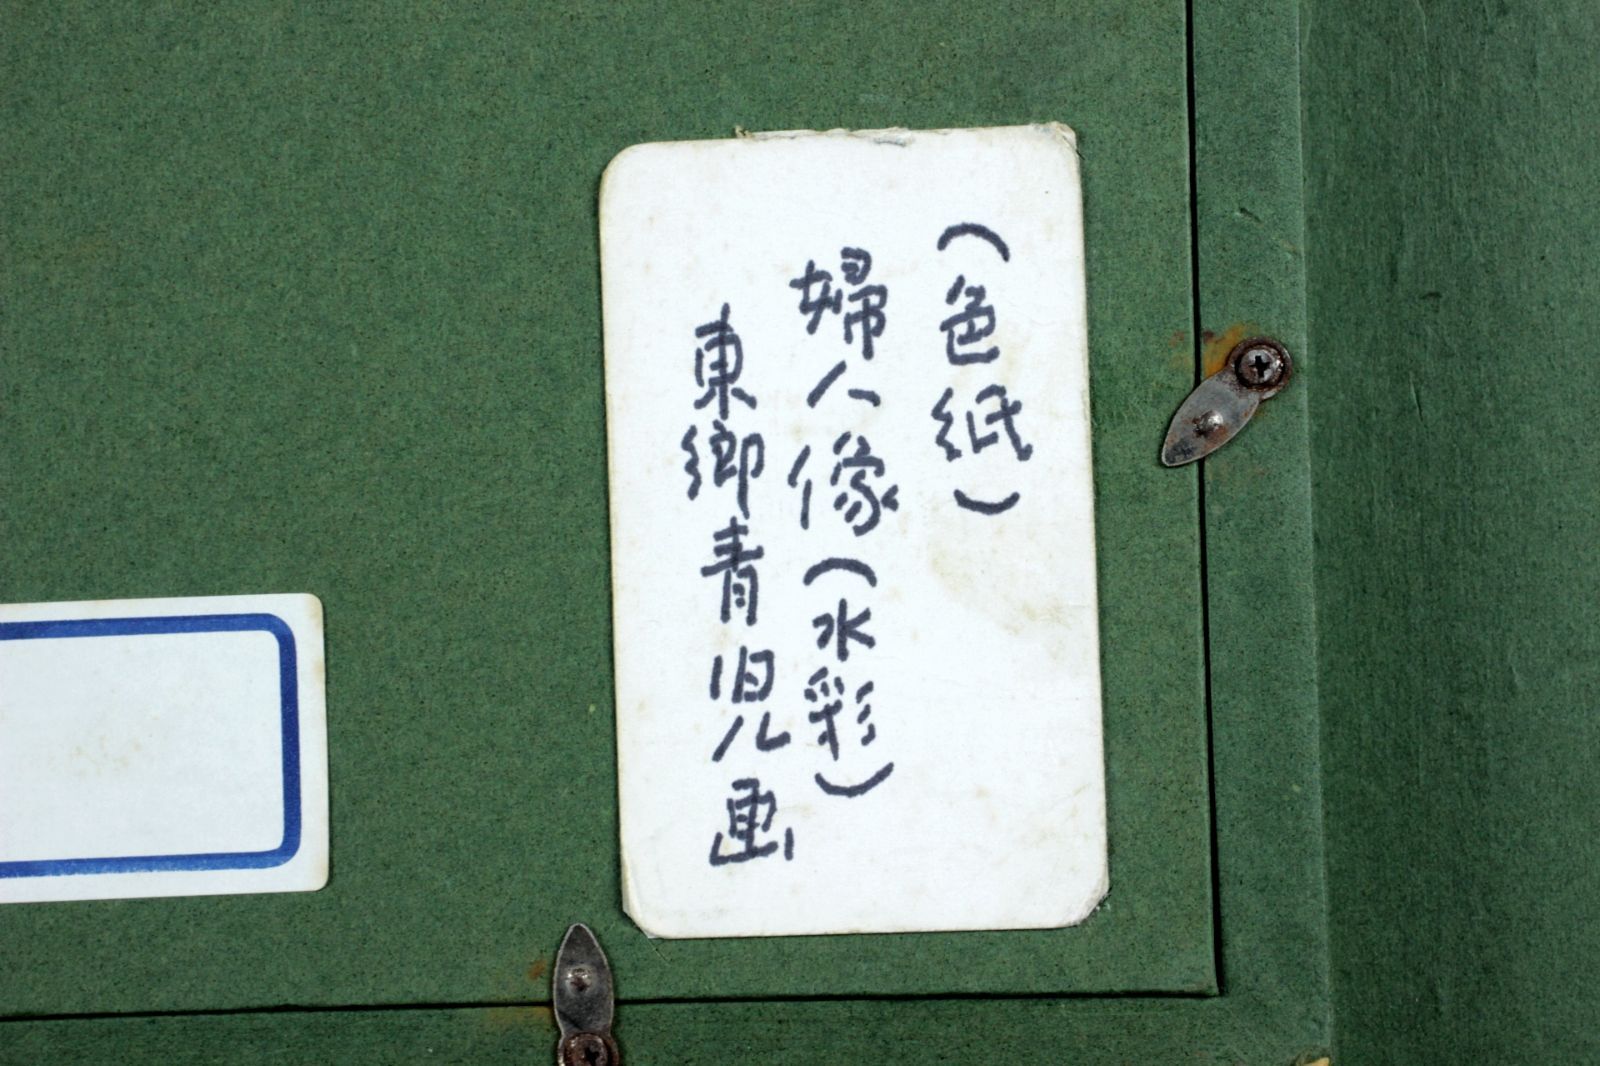 （色紙）
婦人像（水彩）
東郷青児画